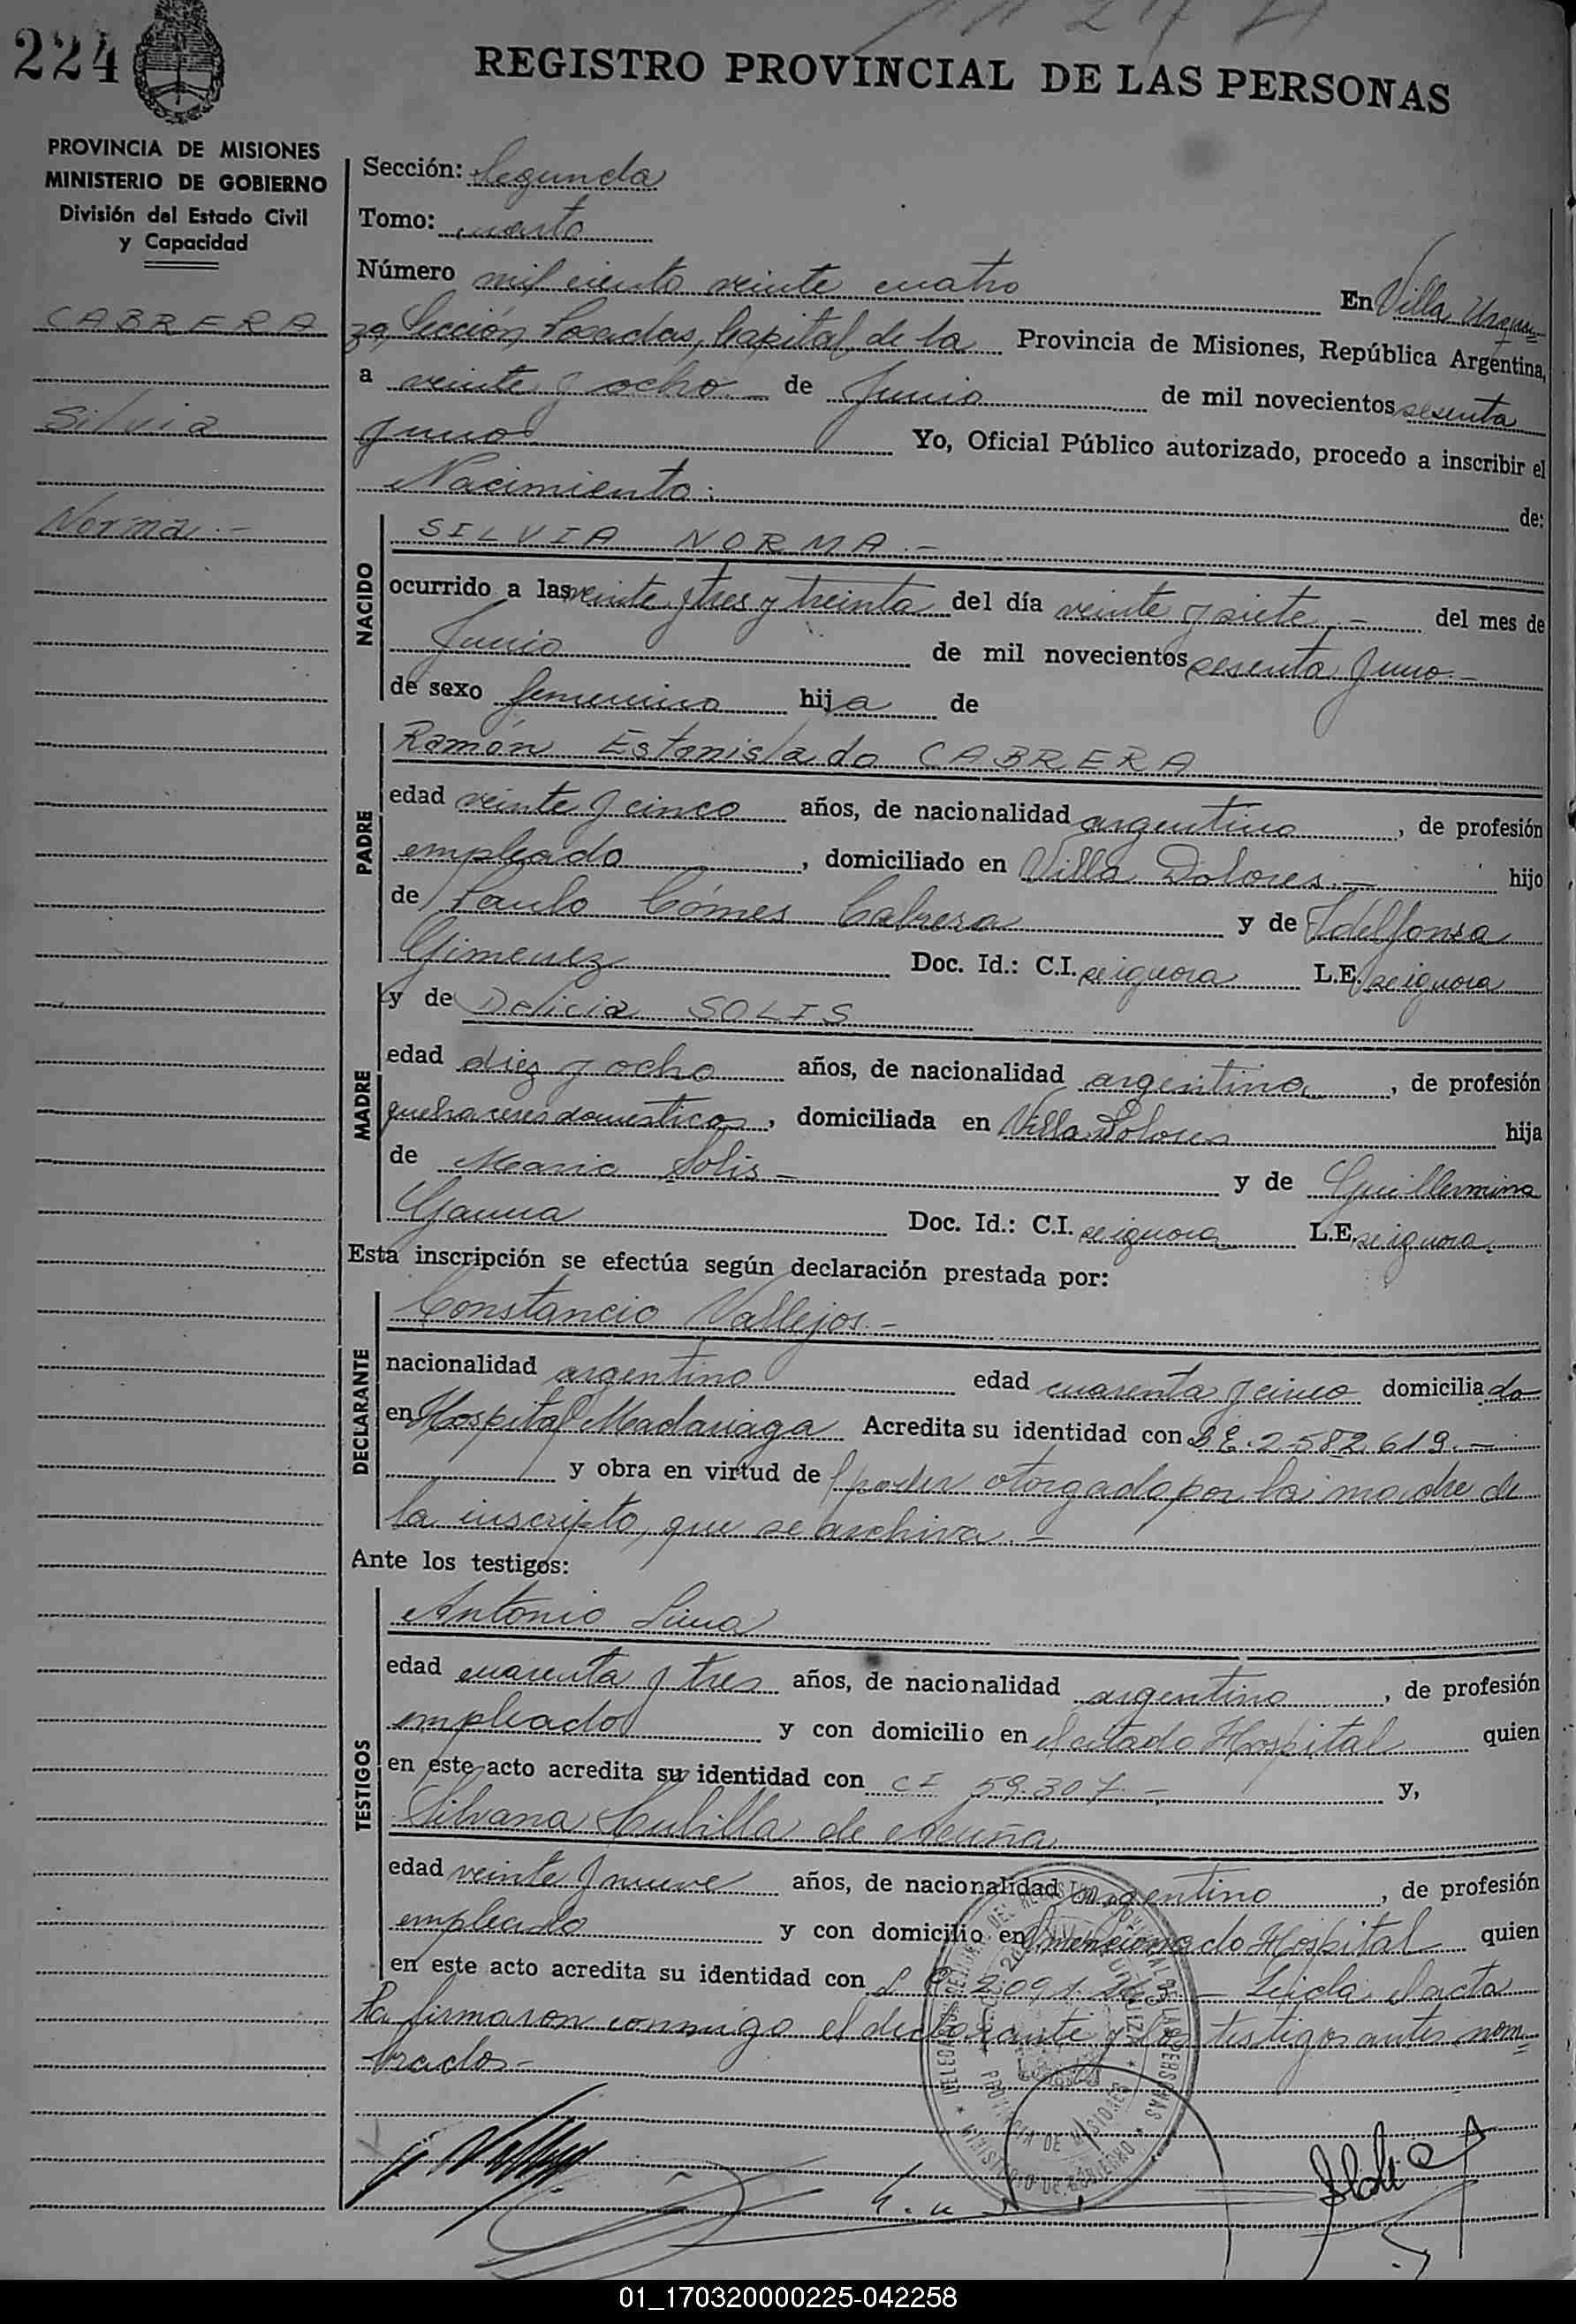 224
REGISTRO PROVINCIAL DE LAS PERSONAS
PROVINCIA DE MISIONES
MINISTERIO DE GOBIERNO
División del Estado Civil
y Capacidad
CABRERA
Silvia
Norma.-
Sección: Segunda
Tomo: cuarto
Número mil ciento veinte cuatro En Villa Urqui=
za, Sección, Posadas, Capital de la Provincia de Misiones, República Argentina,
a veinte y ocho de Junio de mil novecientos sesenta
y uno Yo, Oficial Público autorizado, procedo a inscribir el
Nacimiento: de:
NACIDO
SILVIA NORMA.-
ocurrido a las veinte y tres y treinta del día veinte y siete.- del mes de
Junio de mil novecientos sesenta y uno.-
de sexo femenino hija de
PADRE
Ramón Estanislado CABRERA
edad veinte y cinco años, de nacionalidad argentino, de profesión
empleado, domiciliado en Villa Dolores.- hijo
de Paulo Gómes Cabrera y de Idelfonsa
Gimenez Doc. Id.: C.I. se ignora L.E. se ignora
MADRE
y de Delicia SOLIS
edad diez y ocho años, de nacionalidad argentina, de profesión
quehaceres domesticos, domiciliada en Villa Dolores hija
de Mario Solis- y de Guillermina
Gauna Doc. Id.: C.I. se ignora L.E. se ignora.
Esta inscripción se efectúa según declaración prestada por:
DECLARANTE
Constancio Vallejos.-
nacionalidad argentino edad cuarenta y cinco domiciliado
en Hospital Madariaga Acredita su identidad con L.E. 2582.619.-
y obra en virtud de poder otorgado por la madre de
la inscripto, que se archiva.-
Ante los testigos:
TESTIGOS
Antonio Lima
edad cuarenta y tres años, de nacionalidad argentino, de profesión
empleado y con domicilio en el citado Hospital quien
en este acto acredita su identidad con CI 59.307.- y,
Silvana Cubilla de Acuña
edad veinte y nueve años, de nacionalidad argentina, de profesión
empleada y con domicilio en mencionado Hospital quien
en este acto acredita su identidad con Leida el acta
la firmaron conmigo el declarante y los testigos antes nom=
brados-
01_170320000225-042258